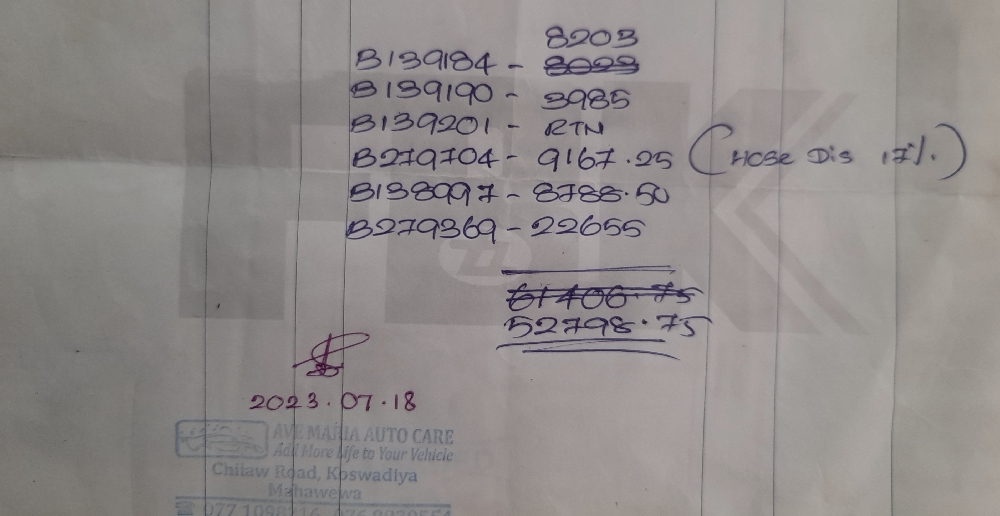 8203
B139184 - 8023
B139190 - 3985
B139201 - RTN
B279704 - 9167.25 (HOSE DIS 17%.)
B138997 - 8788.50
B279369 - 22655
61406.75
52798.75
2023.07.18
AVE MARIA AUTO CARE
Add More life to Your Vehicle
Chilaw Road, Koswadiya
Mahawewa